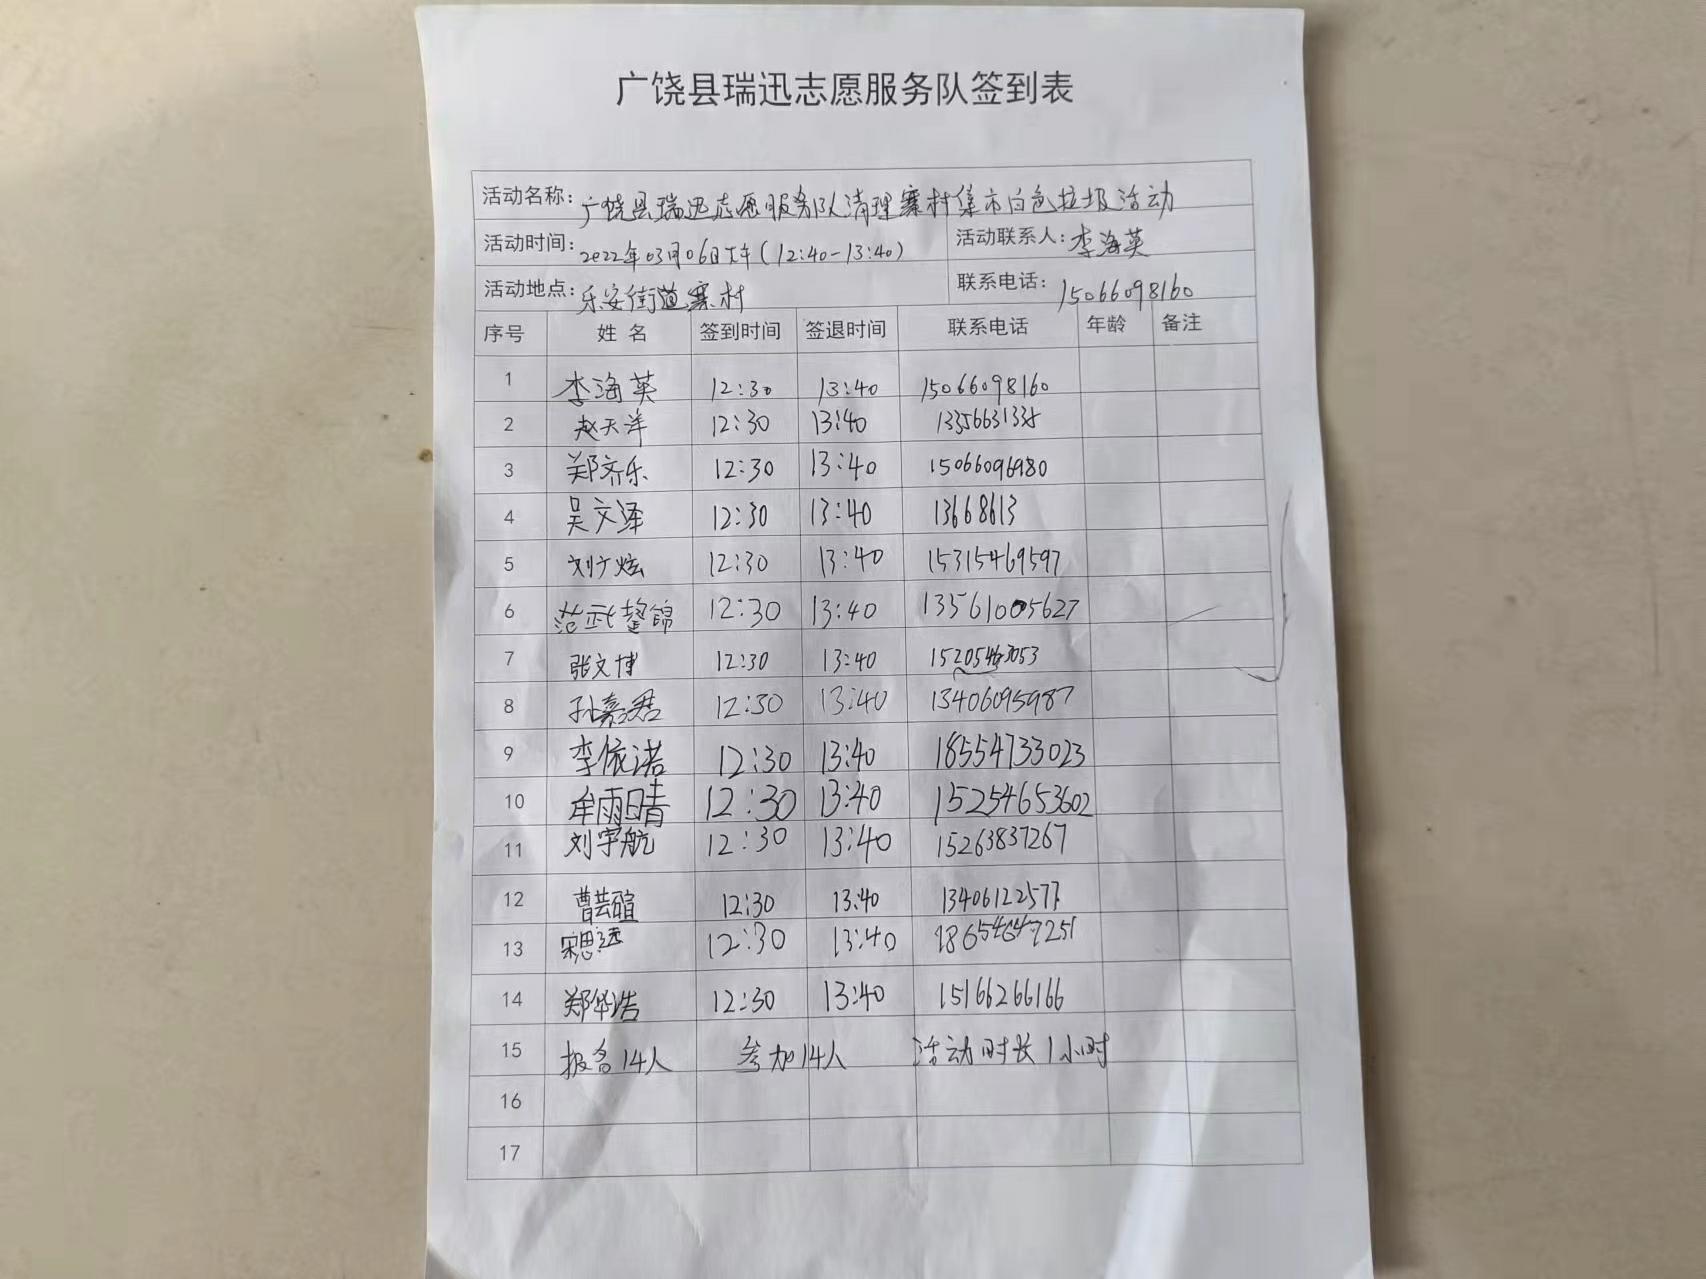 广饶县瑞迅志愿服务队签到表
活动名称: 广饶县瑞迅志愿服务队清理寨村集市白色垃圾活动
活动时间: 2022年03月06日下午(12:40-13:40) 活动联系人: 李海英
活动地点: 乐安街道寨村 联系电话: 15066098160
序号 姓名 签到时间 签退时间 联系电话 年龄 备注
1 李海英 12:30 13:40 15066098160
2 赵天洋 12:30 13:40
3 郑齐乐 12:30 13:40 15066096980
4 吴文泽 12:30 13:40 13668613
5 刘广炫 12:30 13:40 15315469597
6 12:30 13:40 13561005627
7 张文博 12:30 13:40
8 孙嘉君 12:30 13:40 13406095987
9 李依诺 12:30 13:40 18554733023
10 牟雨晴 12:30 13:40 15254653602
11 刘宇航 12:30 13:40 15263837267
12 曹芸萱 12:30 13:40 13406122577
13 宋思远 12:30 13:40 18654647251
14 郑华浩 12:30 13:40 15166266166
15 报名14人 参加14人 活动时长1小时
16
17